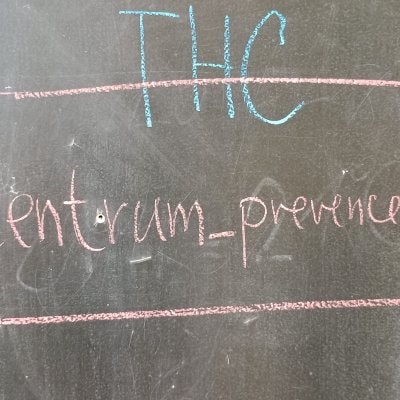 THC
entrum_prevence